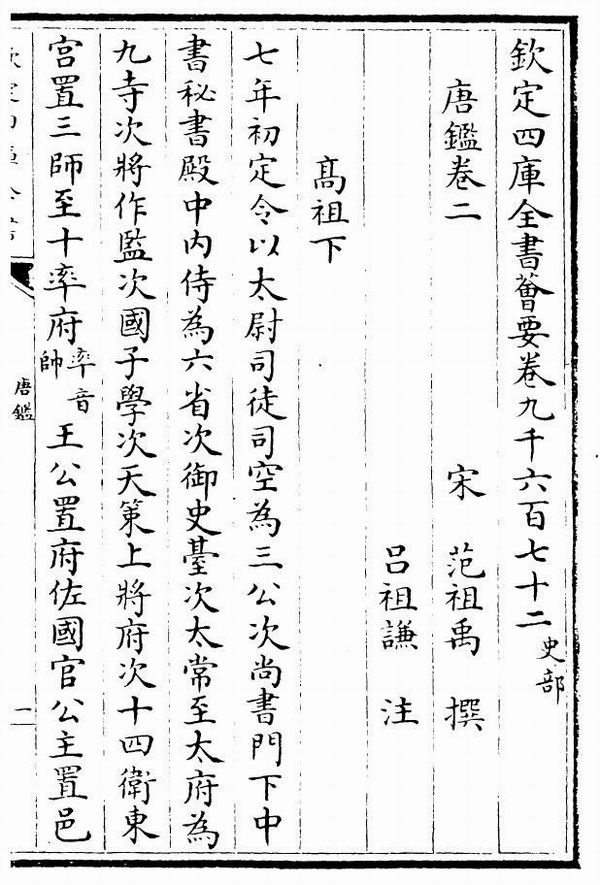 欽定四庫全書薈要卷九千六百七十二 史部
唐鑑卷二 宋 范祖禹 撰
呂祖謙 注
髙祖下
七年初定令以太尉司徒司空為三公次尚書門下中
書秘書殿中内侍為六省次御史臺次太常至太府為
九寺次將作監次國子學次天策上將府次十四衛東
宫置三師至十率府率音帥王公置府佐國官公主置邑
唐鑑